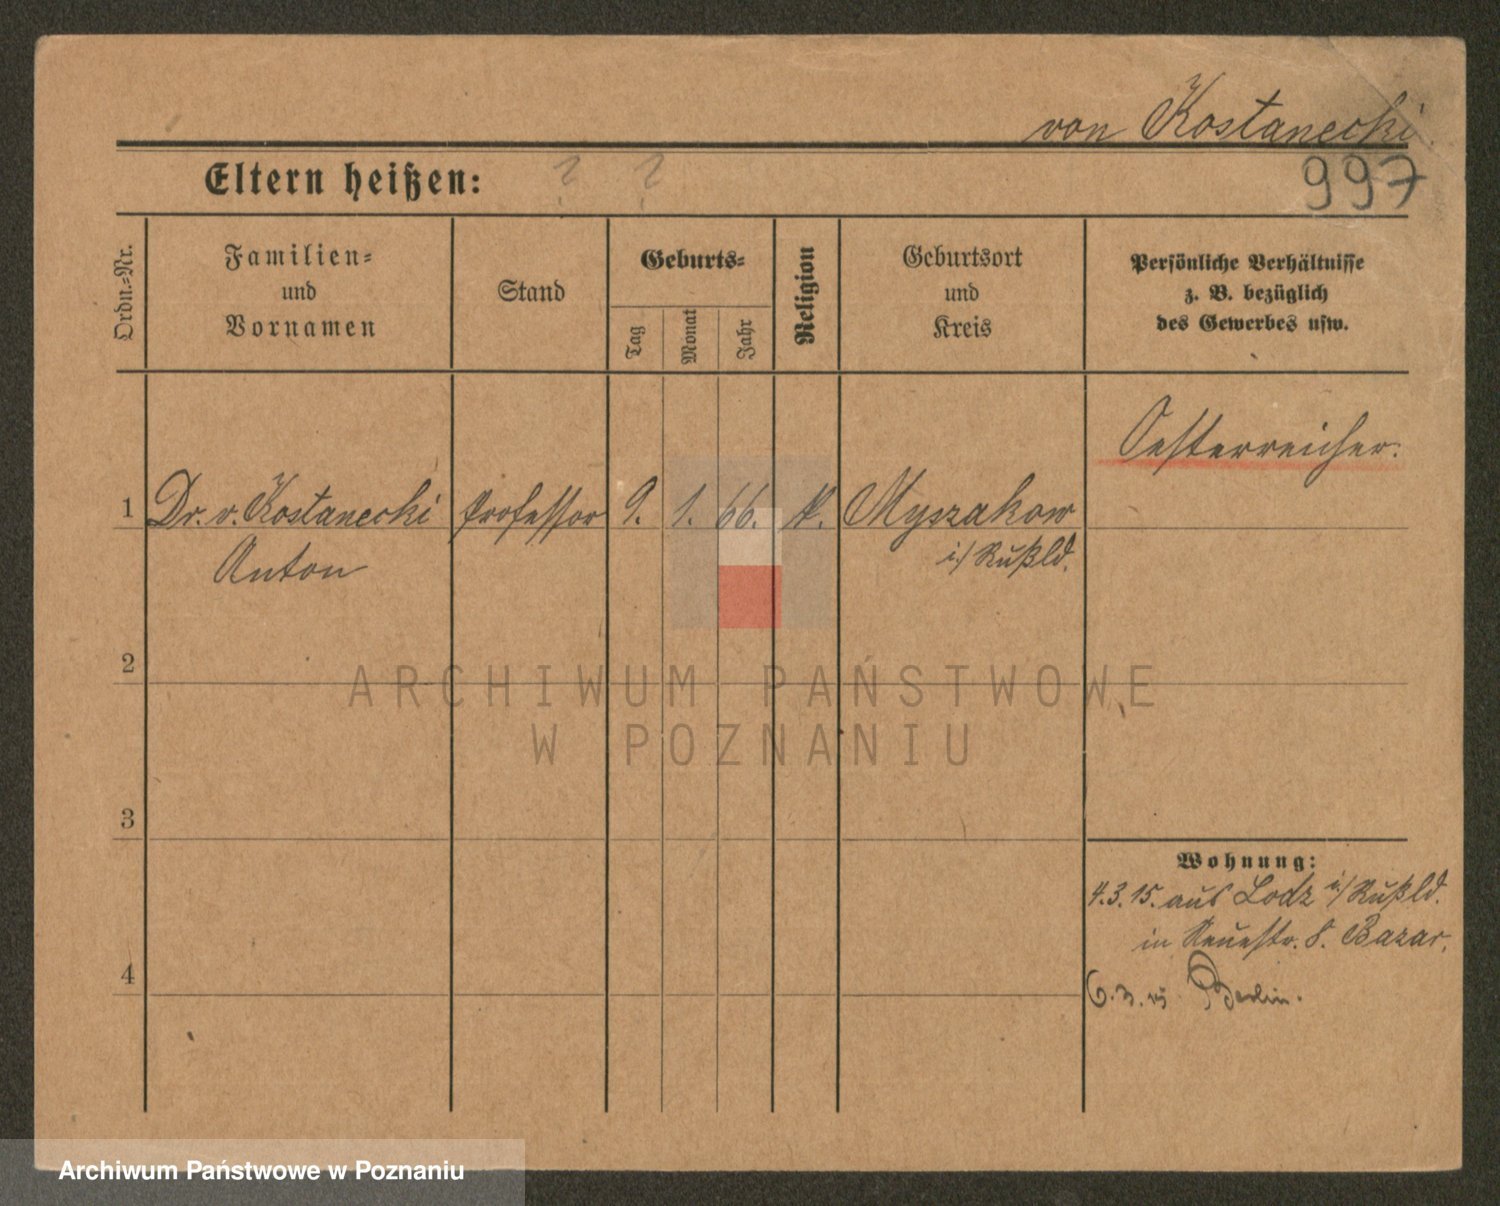 von Kostanecki.
997
Eltern heißen: ? ?
Ordn.=Nr.
Familien=
und
Vornamen
Stand
Geburts=
Tag
Monat
Jahr
Religion
Geburtsort
und
Kreis
Persönliche Verhältnisse
z. B. bezüglich
des Gewerbes usw.
Oesterreicher.
1 Dr. v. Kostanecki Professor 9. 1. 66. k. Myszakow
Anton i/ Rußld.
2
ARCHIWUM PAŃSTWOWE
W POZNANIU
3
Wohnung:
4.3.15. aus Lodz i/ Rußld.
in Neuestr. 8. Bazar.
4
6.3.15 Berlin.
Archiwum Państwowe w Poznaniu